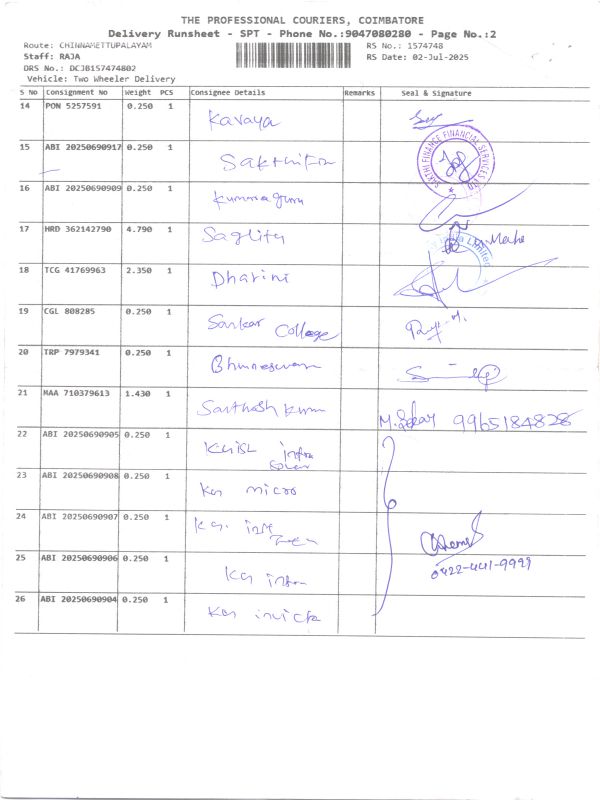 THE PROFESSIONAL COURIERS, COIMBATORE
Delivery Runsheet - SPT - Phone No.:9047080280 - Page No.:2
Route: CHINNAMETTUPALAYAM RS No.: 1574748
Staff: RAJA RS Date: 02-Jul-2025
DRS No.: DCJB157474802
Vehicle: Two Wheeler Delivery
S No Consignment No Weight PCS Consignee Details Remarks Seal & Signature
14 PON 5257591 0.250 1 Kavaya
15 ABI 20250690917 0.250 1 Sakthifin SAKTHI FINANCE FINANCIAL SERVICES LTD
16 ABI 20250690909 0.250 1 Kummaguru
17 HRD 362142790 4.790 1 Saglity
18 TCG 41769963 2.350 1 Dharini
19 CGL 808285 0.250 1 Sankar College
20 TRP 7979341 0.250 1 Bhuneswari
21 MAA 710379613 1.430 1 Santhosh Kumar M. Sekar 9965184828
22 ABI 20250690905 0.250 1 KGISL infra
23 ABI 20250690908 0.250 1 KG micro
24 ABI 20250690907 0.250 1 KG.
0422-441-9929
25 ABI 20250690906 0.250 1 KG infra
26 ABI 20250690904 0.250 1 KG invicta